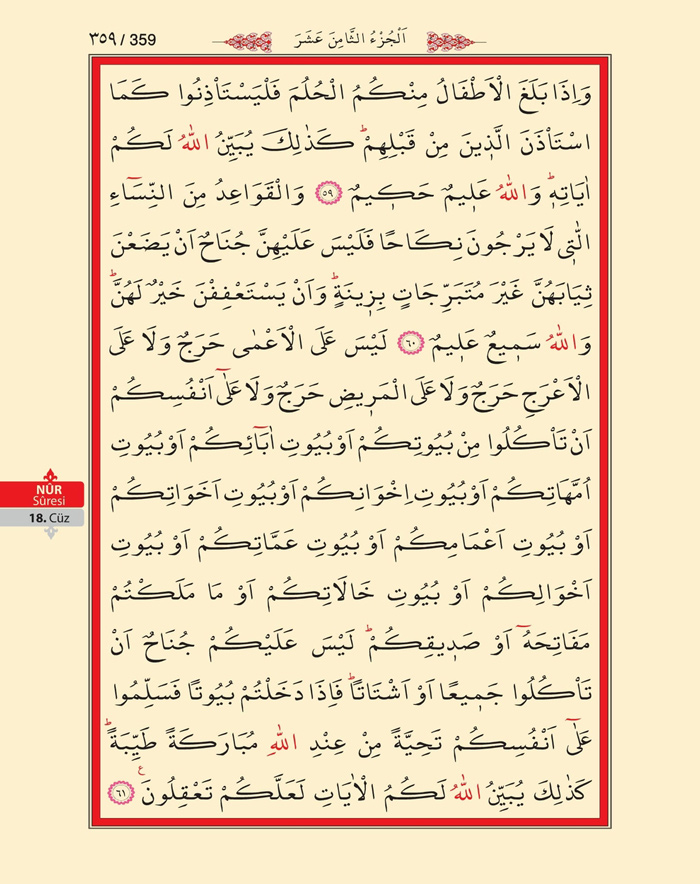 ٣٥٩ / 359
اَلْجُزْءُ الثَّامِنَ عَشَرَ
وَاِذَا بَلَغَ الْاَطْفَالُ مِنْكُمُ الْحُلُمَ فَلْيَسْتَأْذِنُوا كَمَا
اسْتَأْذَنَ الَّذ۪ينَ مِنْ قَبْلِهِمْۜ كَذٰلِكَ يُبَيِّنُ اللّٰهُ لَكُمْ
اٰيَاتِه۪ۜ وَاللّٰهُ عَل۪يمٌ حَك۪يمٌ ﴿٥٩﴾ وَالْقَوَاعِدُ مِنَ النِّسَٓاءِ
الّٰت۪ي لَا يَرْجُونَ نِكَاحًا فَلَيْسَ عَلَيْهِنَّ جُنَاحٌ اَنْ يَضَعْنَ
ثِيَابَهُنَّ غَيْرَ مُتَبَرِّجَاتٍ بِز۪ينَةٍۜ وَاَنْ يَسْتَعْفِفْنَ خَيْرٌ لَهُنَّۜ
وَاللّٰهُ سَم۪يعٌ عَل۪يمٌ ﴿٦٠﴾ لَيْسَ عَلَى الْاَعْمٰى حَرَجٌ وَلَا عَلَى
الْاَعْرَجِ حَرَجٌ وَلَا عَلَى الْمَر۪يضِ حَرَجٌ وَلَا عَلٰٓى اَنْفُسِكُمْ
اَنْ تَأْكُلُوا مِنْ بُيُوتِكُمْ اَوْ بُيُوتِ اٰبَٓائِكُمْ اَوْ بُيُوتِ
اُمَّهَاتِكُمْ اَوْ بُيُوتِ اِخْوَانِكُمْ اَوْ بُيُوتِ اَخَوَاتِكُمْ
اَوْ بُيُوتِ اَعْمَامِكُمْ اَوْ بُيُوتِ عَمَّاتِكُمْ اَوْ بُيُوتِ
اَخْوَالِكُمْ اَوْ بُيُوتِ خَالَاتِكُمْ اَوْ مَا مَلَكْتُمْ
مَفَاتِحَهُٓ اَوْ صَد۪يقِكُمْۜ لَيْسَ عَلَيْكُمْ جُنَاحٌ اَنْ
تَأْكُلُوا جَم۪يعًا اَوْ اَشْتَاتًاۜ فَاِذَا دَخَلْتُمْ بُيُوتًا فَسَلِّمُوا
عَلٰٓى اَنْفُسِكُمْ تَحِيَّةً مِنْ عِنْدِ اللّٰهِ مُبَارَكَةً طَيِّبَةًۜ
كَذٰلِكَ يُبَيِّنُ اللّٰهُ لَكُمُ الْاٰيَاتِ لَعَلَّكُمْ تَعْقِلُونَ ۟ ﴿٦١﴾
NÛR
Sûresi
18. Cüz